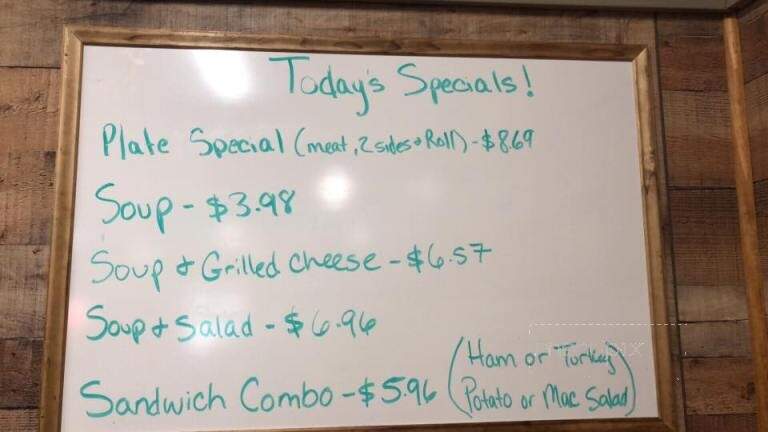 Today's Specials!
Plate Special (meat, 2 sides + Roll) - $8.69
Soup - $3.98
Soup & Grilled Cheese - $6.57
Soup & Salad - $6.96
Sandwich Combo - $5.96 (Ham or Turkey
Potato or Mac Salad)